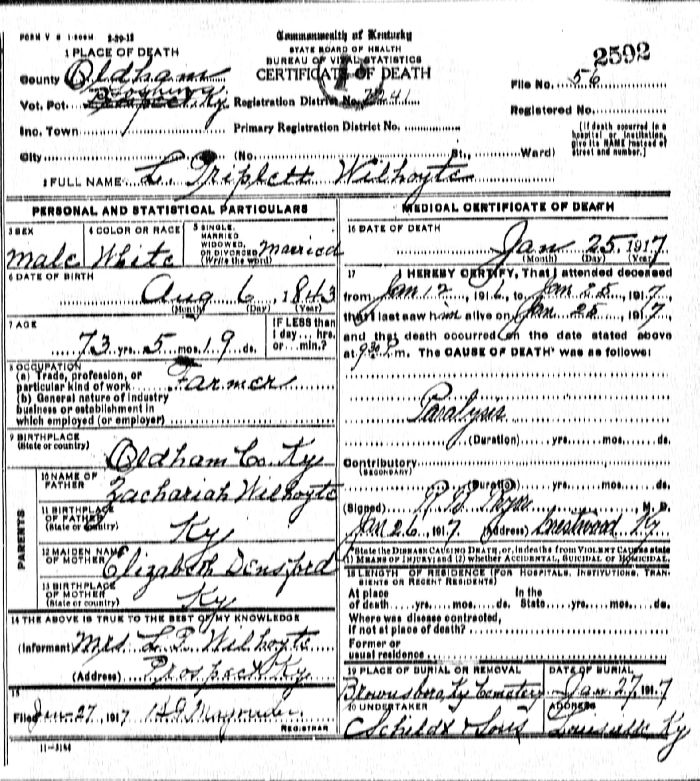 FORM V S 1-500M 2-29-12
Commonwealth of Kentucky
STATE BOARD OF HEALTH
BUREAU OF VITAL STATISTICS
CERTIFICATE OF DEATH
2592
1 PLACE OF DEATH
County Oldham
Vot. Pct. Prospect, Ky
Inc. Town
City
Registration District No.
Primary Registration District No.
(No. St., Ward)
File No. 56
Registered No.
[If death occurred in a hospital or institution, give its NAME instead of street and number.]
2 FULL NAME L. Triplett Wilhoyte
PERSONAL AND STATISTICAL PARTICULARS
3 SEX Male
4 COLOR OR RACE White
5 SINGLE, MARRIED WIDOWED, OR DIVORCED (Write the word) Married
6 DATE OF BIRTH
Aug 6, 1843
(Month) (Day) (Year)
7 AGE
73 yrs. 5 mos. 19 ds.
IF LESS than 1 day... hrs. or... min.?
8 OCCUPATION
(a) Trade, profession, or particular kind of work Farmer
(b) General nature of industry business or establishment in which employed (or employer)
9 BIRTHPLACE
(State or country)
Oldham Co. Ky
PARENTS
10 NAME OF FATHER Zachariah Wilhoyte
11 BIRTHPLACE OF FATHER (State or country) Ky
12 MAIDEN NAME OF MOTHER Elizabeth Densford
13 BIRTHPLACE OF MOTHER (State or country) Ky
14 THE ABOVE IS TRUE TO THE BEST OF MY KNOWLEDGE
(Informant) Mrs. L. T. Wilhoyte
(Address) Prospect Ky
15
Filed Jan 27 1917
REGISTRAR
11-3184
MEDICAL CERTIFICATE OF DEATH
16 DATE OF DEATH
Jan 25, 1917
(Month) (Day) (Year)
17 I HEREBY CERTIFY, That I attended deceased
from Jan 12, 1916, to Jan 25, 1917
that I last saw him alive on Jan 25, 1917
and that death occurred on the date stated above
at 9:30 P.m. The CAUSE OF DEATH* was as follows:
Paralysis
(Duration) yrs. mos. ds.
Contributory
(SECONDARY)
(Duration) yrs. mos. ds.
(Signed) M. D.
Jan 26, 1917 (Address) Crestwood Ky
*State the DISEASE CAUSING DEATH, or, in deaths from VIOLENT CAUSES state
(1) MEANS OF INJURY; and (2) whether ACCIDENTAL, SUICIDAL or HOMICIDAL.
18 LENGTH OF RESIDENCE (FOR HOSPITALS, INSTITUTIONS, TRANSIENTS OR RECENT RESIDENTS)
At place of death yrs. mos. ds. In the State yrs. mos. ds.
Where was disease contracted, if not at place of death?
Former or usual residence
19 PLACE OF BURIAL OR REMOVAL
Brownsboro, Ky Cemetery
DATE OF BURIAL
Jan 27, 1917
20 UNDERTAKER
Schildt & Sons
ADDRESS
Louisville Ky